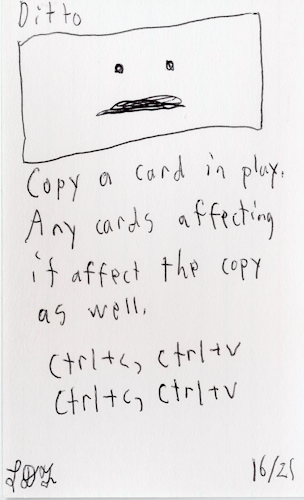 Ditto
Copy a card in play.
Any cards affecting
it affect the copy
as well.
Ctrl+c, Ctrl+v
Ctrl+c, Ctrl+v
16/25